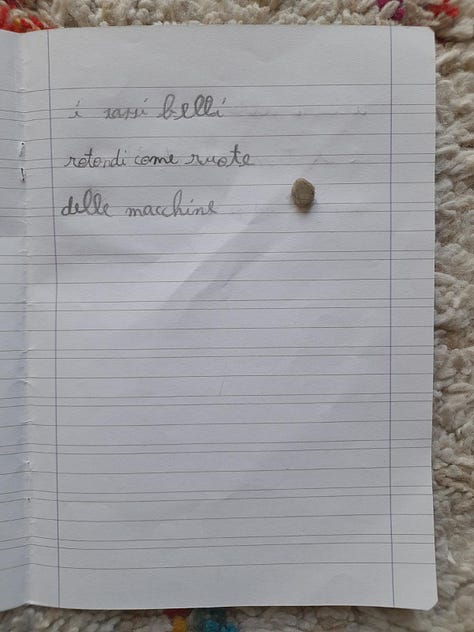 i sassi belli
rotondi come ruote
delle macchine